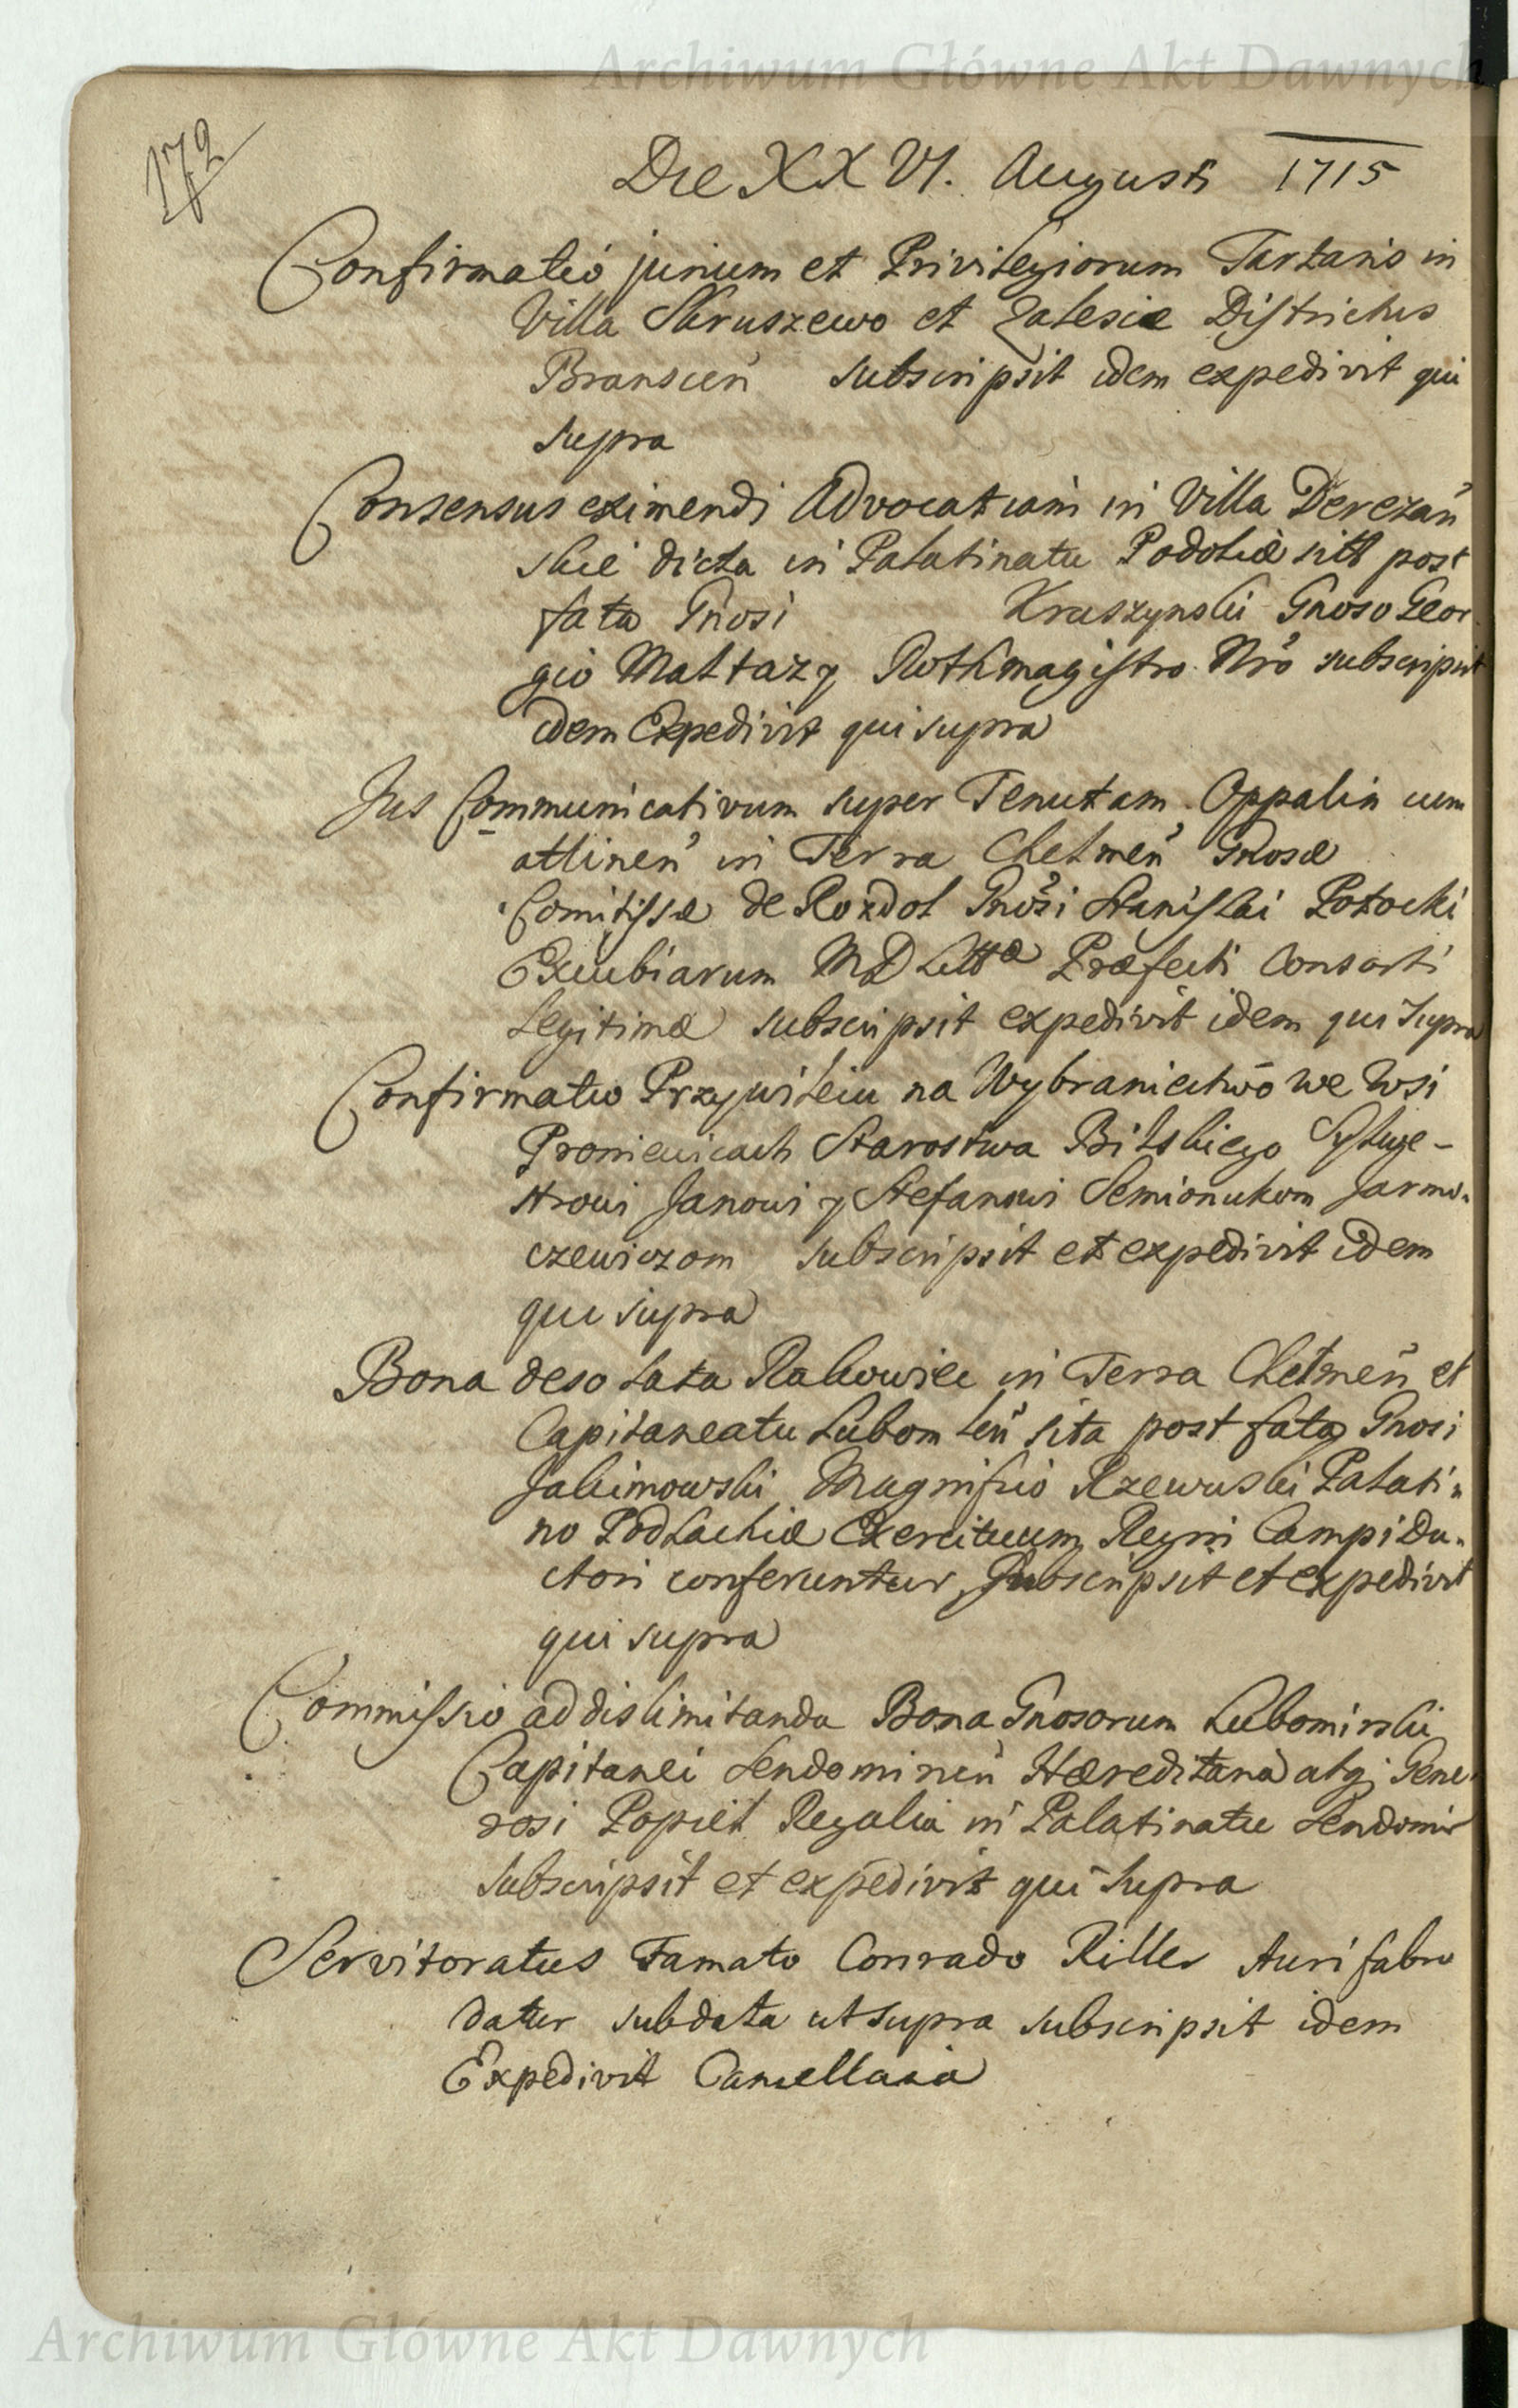 Archiwum Główne Akt Dawnych
172
Die XXVI. Augusti 1715
Confirmatio jurium et Privilegiorum Tartaris in
Villa Skruszewo et Zalesie Districtus
Branscen subscripsit idem expedivit qui
supra
Consensus eximendi Advocatiam in Villa Derezan
skie dicta in Palatinatu Podoliæ sitt post
fata Gnosi Kraszynski Gnoso Geor
gio Maltazy Rothmagistro Nro subscripsit
idem Expedivit qui supra
Jus Communicativum super Tenutam Oppalin cum
attinen in Terra Chelmen Gnosæ
Comitissæ de Rozdol Gnosi Stanislai Potocki
Excubiarum MD Littæ Præfecti Consorti
Legitimæ subscripsit expedivit idem qui supra
Confirmatio Przywileiu na Wybraniectwo we Wsi
Proniewicach Starostwa Bilskiego Sylwe-
strowi Janowi y Stefanowi Semionukom Jarmo-
czewiczom subscripsit et expedivit idem
qui supra
Bona desolata Rakowiec in Terra Chelmen et
Capitaneatu Lubomlen sita post fata Gnosi
Jakimowski Magnifico Rzewuski Palati-
no Podlachiæ Exercituum Regni Campi Du-
ctori conferuntur, Subscripsit et expedivit
qui supra
Commissio ad dislimitanda Bona Gnosorum Lubomirski
Capitanei Sendomirien Hæreditaria atq; Gene-
rosi Popiel Regalia in Palatinatu Sendomir
subscripsit et expedivit qui supra
Servitoratus Famato Conrado Riller Aurifabro
datur sub data ut supra subscripsit idem
Expedivit Cancellaria
Archiwum Główne Akt Dawnych